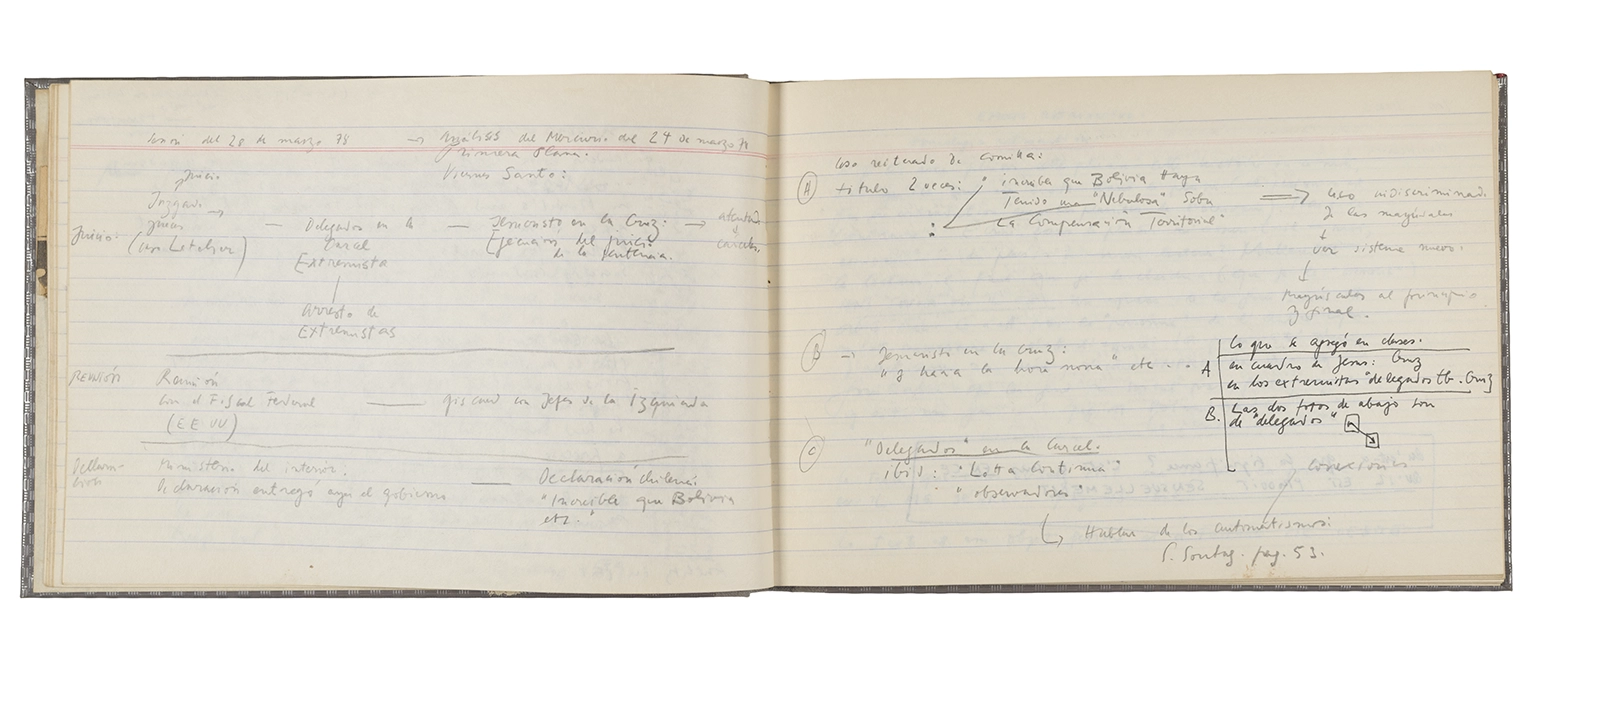 Sesión del 28 de marzo 78 → Análisis del Mercurio del 24 de marzo 78
Primera Plana.
Viernes Santo:
juicio
Juzgado →
Juicio:
(caso Letelier)
— Delegados en la
Carcel
Extremista
Arresto de
Extremistas
— Jesucristo en la Cruz: →
Ejecución del juicio
de la sentencia.
REUNIÓN
Reunión
con el Fiscal Federal
(EE UU)
— Giscard con Jefes de la Izquierda
Declaración
Ministerio del interior.
Declaración entregó ayer el gobierno
— Declaración chilena:
"Increible que Bolivia
etc."
Uso reiterado de comillas:
(A) título 2 veces: "increible que Bolivia Haya
Tenido una "Nebulosa" Sobre
La Compensación Territorial"
⇒ Uso indiscriminado
de las mayúsculas
↓
ver sistema nuevo:
↓
Mayúsculas al principio
y final.
(B) → Jesucristo en la Cruz:
"y hacia la hora nona" etc. . .
lo que se agregó en clases.
A en cuadro de Jesus: Cruz
en los extremistas "delegados tb. Cruz
B. Las dos fotos de abajo son
de "delegados"
(C) "Delegados" en la Carcel.
ibid: "Lotta Continua"
"observadores"
conexiones
↳ Hablar de los automatismos:
S. Sontag. pag. 53.